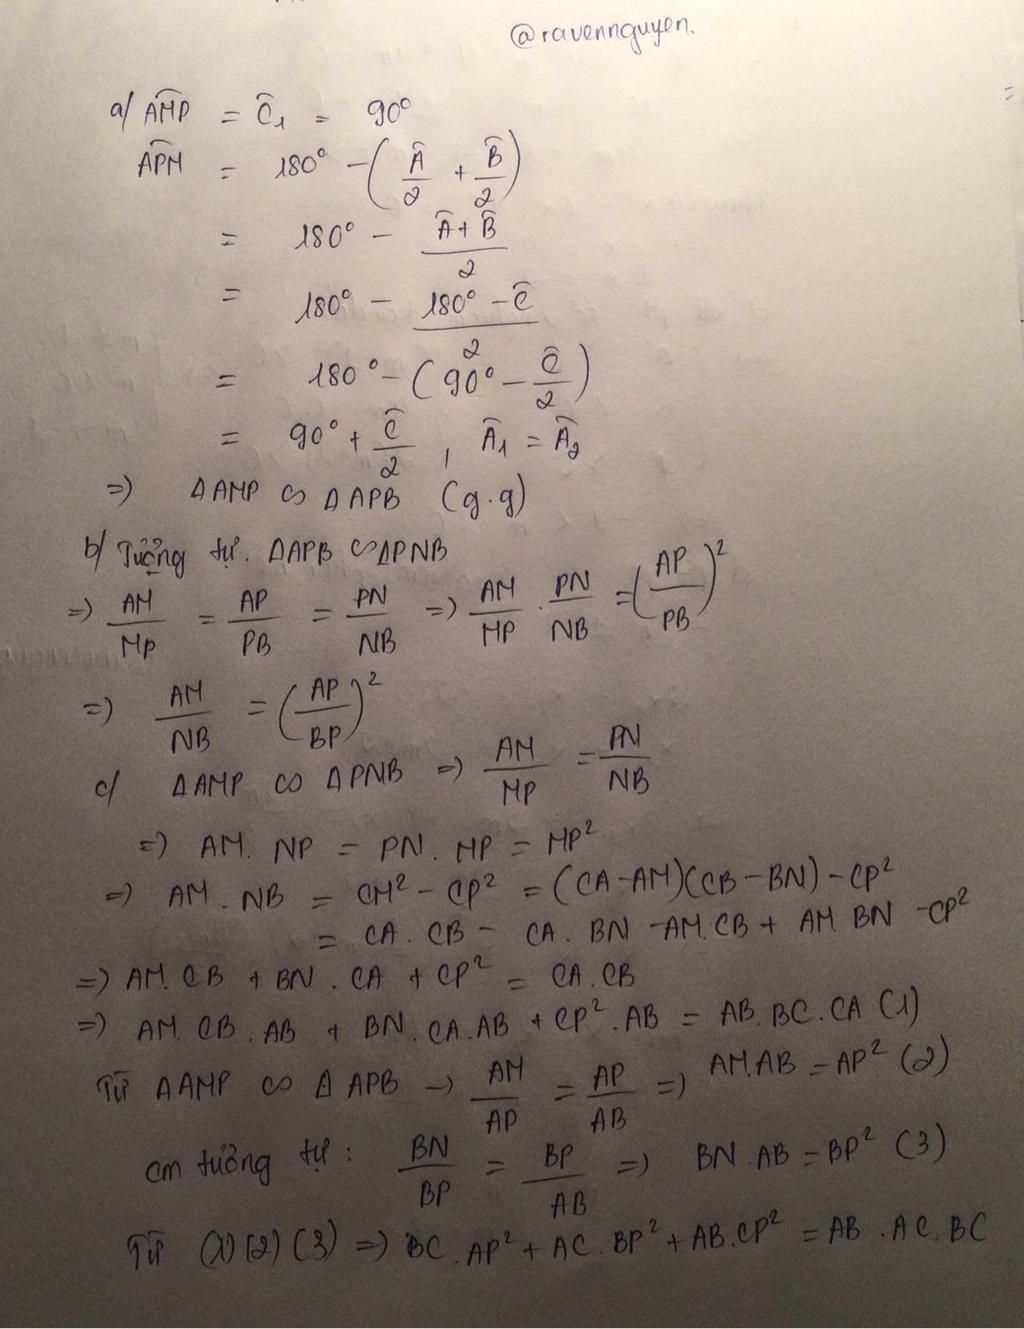 @ravennguyen.
a/ \widehat{AMP} = \widehat{C}_1 = 90°
\widehat{APM} = 180° - (\frac{\widehat{A}}{2} + \frac{\widehat{B}}{2})
= 180° - \frac{\widehat{A} + \widehat{B}}{2}
= 180° - \frac{180° - \widehat{C}}{2}
= 180° - (90° - \frac{\widehat{C}}{2})
= 90° + \frac{\widehat{C}}{2} , \widehat{A}_1 = \widehat{A}_2
=> ΔAMP ∽ ΔAPB (g.g)
b/ Tương tự. ΔAPB ∽ ΔPNB
=> \frac{AM}{MP} = \frac{AP}{PB} = \frac{PN}{NB} => \frac{AM}{MP} . \frac{PN}{NB} = (\frac{AP}{PB})^2
=> \frac{AM}{NB} = (\frac{AP}{BP})^2
c/ ΔAMP ∽ ΔPNB => \frac{AM}{MP} = \frac{PN}{NB}
=> AM. NP = PN. MP = MP²
=> AM . NB = CM² - CP² = (CA-AM)(CB-BN) - CP²
= CA . CB - CA . BN - AM.CB + AM. BN - CP²
=> AM.CB + BN . CA + CP² = CA.CB
=> AM. CB . AB + BN . CA . AB + CP² . AB = AB. BC. CA (1)
Từ ΔAMP ∽ ΔAPB -> \frac{AM}{AP} = \frac{AP}{AB} => AM.AB = AP² (2)
cm tương tự : \frac{BN}{BP} = \frac{BP}{AB} => BN . AB = BP² (3)
Từ (1) (2) (3) => BC . AP² + AC . BP² + AB. CP² = AB . AC. BC